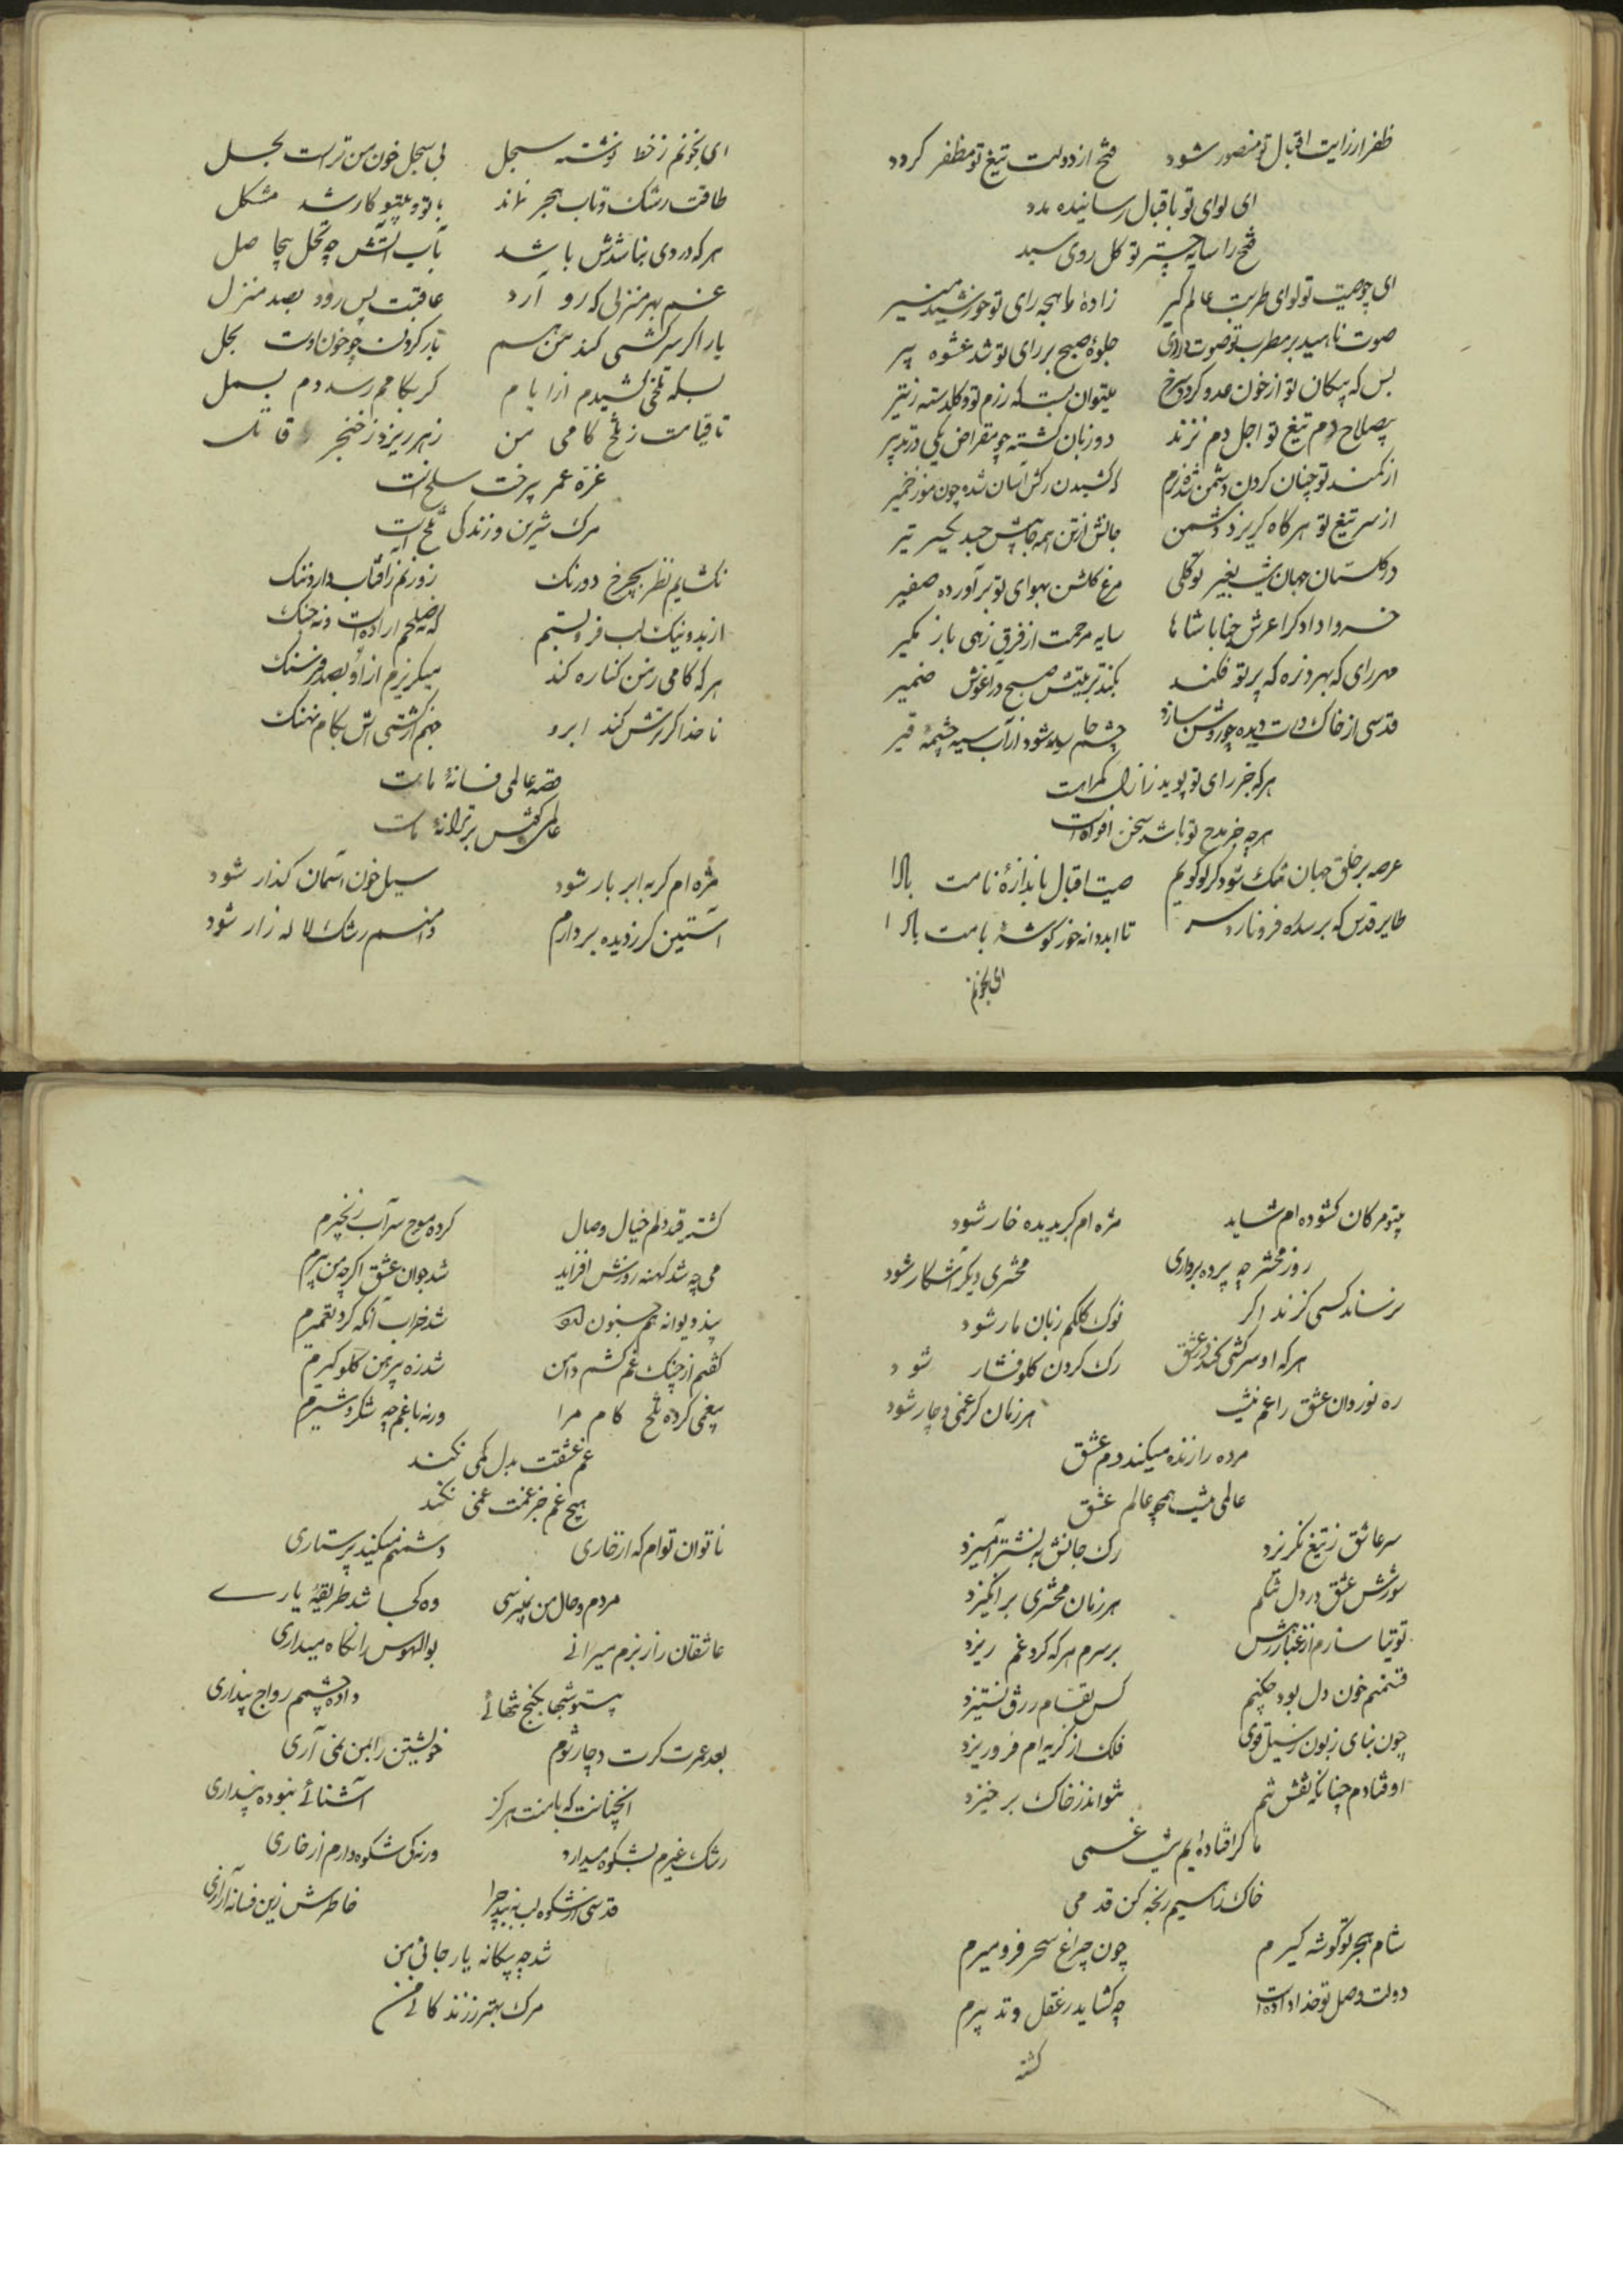 ظفر از رایت اقبال تو منصور شود فتح از دولت تیغ تو مظفر گردد
ای لوای تو باقبال رسانیده مدد
فتح را سایه چتر تو گل روی سبد
ای چو صیت تو لوای طربت عالم گیر زادهٔ ماهچه رای تو خورشید منیر
صوت ناهید بر مطرب تو صوت جلوهٔ صبح بر رای تو شد عشوه پیر
بس که پیکان تو از خون عدو گردد سرخ میتوان بست که رزم تو گلدسته ز تیر
بصلاح دم تیغ تو اجل دم نزند دو زبان گشته چو مقراض یکی در تدبیر
از کمند تو چنان گردن دشمن شده نرم که کشیدن رگش آسان شده چون مو ز خمیر
از سر تیغ تو هر گاه گریزد دشمن جانش از تن همه جا پیش جهد یکسر تیر
در گلستان جهان نیست بغیر تو گلی مرغ گلشن بهوای تو برآورده صفیر
خسروا دادگرا عرش جنابا شاها سایه مرحمت از فرق رهی باز مگیر
مهر رای که بهر ذره که پرتو فکند بکند تربیتش صبح در آغوش ضمیر
قدسی از خاک درت دیده چو روشن سازد چشم شود از آب سیه چشمهٔ قیر
هر که جز رای تو پوید ز ازل گمراهست
هر چه جز مدح تو باشد سخن افواهست
عرصه بر خلق جهان تنگ شود گر گویم صیت اقبال باندازهٔ نامت بالا
طایر قدس که بر سدره فرو نارد سر تا ابد دانه خور گوشهٔ بامت بالا
ای بخونم
ای بخونم ز خط نوشته سجل بی سجل خون من تراست بحل
طاقت رشک و تاب هجر نماند با تو و بیتو کار شد مشکل
هر که در وی بنا شدش باشد بآب آتش چه نخل بیحاصل
غم بهر منزلی که رو آرد عاقبت پس رود بصد منزل
یار اگر سرکشی کند من هم بار گردن چو خون اوست بحل
بسکه تلخی کشیدم از ایام گر بکامم رسد دم بسمل
تا قیامت ز تلخ کامی من زهر ریزد ز خنجر قاتل
غرهٔ عمر پر خت سلخ است
مرگ شیرین و زندگی تلخ است
نگشایم نظر بچرخ دو رنگ روزنم ز آفتاب دارد ننگ
از بد و نیک لب فرو بستم که نه صلحم اراده است و نه جنگ
هر که گامی ز من کناره کند میگریزم ازو بصد فرسنگ
ناخدا گر ترش کند ابرو جهم از کشتی اش بکام نهنگ
قصه عالمی فسانهٔ ماست
عالمی گوش بر ترانهٔ ماست
مژه ام گر به ابر بار شود سیل خون آسمان گذار شود
آستین گر ز دیده بردارم دامنم رشک لاله زار شود
بیتو مژگان گشوده ام شاید مژه ام گر بدیده خار شود
روز محشر چه پرده برداری محشری دیگر آشکار شود
نرساند کسی گزند اگر نوک کلکم زبان مار شود
هر که او سر کشی کند در عشق رگ گردن گلو فشار شود
ره نوردان عشق را غم نیست هر زمان گر غمی دچار شود
مرده را زنده میکند دم عشق
عالمی نیست همچو عالم عشق
سر عاشق ز تیغ نگریزد رگ جانش به نشتر آمیزد
سوزش عشق در دل تنگم هر زمان محشری برانگیزد
توتیا سازم از غبار رهش بر سرم هر که گرد غم ریزد
قسمتم خون دل بود چکنم کس بقسام رزق نستیزد
چون بنای زبون ز سیل قوی فلک از گریه ام فرو ریزد
اوفتادم چنانکه نقش تنم نتواند ز خاک برخیزد
ما گر افتاده ایم نیست غمی
خاک راهیم رنجه کن قدمی
شام هجر تو گوشه گیرم چون چراغ سحر فرو میرم
دولت وصل تو خداداد است چه گشاید ز عقل و تدبیرم
گشته
گشته قید دلم خیال وصال کرده موج سراب زنجیرم
می چه شد کهنه زورش افزاید شد جوان عشق اگر چه من پیرم
پند دیوانه هم شد خراب آنکه کرد تعمیرم
گفتم از چنگ غم کشم دامن شد زه پیرهن گلوگیرم
بیغمی کرده تلخ کام مرا ورنه با غم چه شکر و شیرم
غم عشقت بدل کمی نکند
هیچ غم جز غمت غمی نکند
ناتوان توام که از خاری دشمنم میکند پرستاری
مردم و حال من نپرسی وه کجا شد طریقهٔ یاری
عاشقان را ز بزم میرانی بوالهوس را نگاه میداری
بیتو شبها بکنج تنهائی داده چشمم رواج بیداری
بعد عمرت گرت دچار شوم خویشتن را بمن نمی آری
آنچنانست که با منت هرگز آشنائی نبوده پنداری
رشک غیرم بشکوه میدارد ورنه کی شکوه دارم از خاری
قدسی از شکوه لب نه بندد چرا خاطرش زین فسانه آزاری
شد چه بیگانه یار جانی من
مرگ بهتر ز زندگانی من